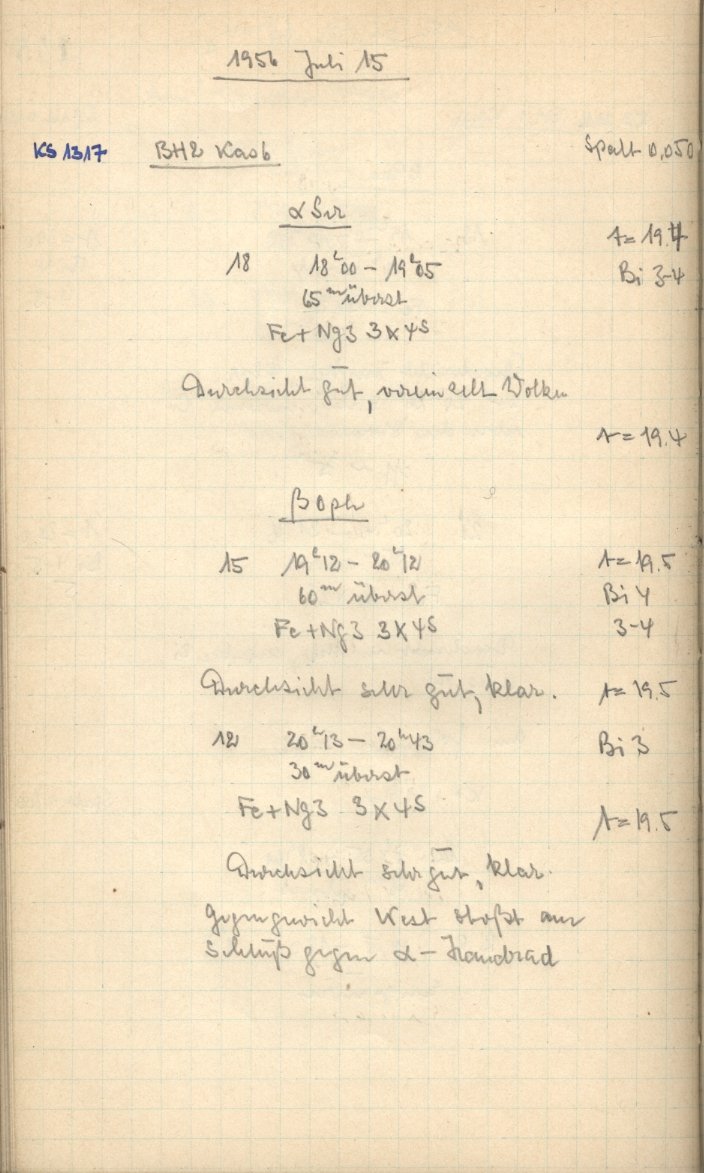 1956 Juli 15
KS 1317 BH2 Kas6 Spalt 0,050
α Ser
A = 19.4
18 18ʰ00 – 19ʰ05 Bi 3-4
65ᵐ überst
Fe+Ng3 3x4S
Durchsicht gut, vereinzelt Wolken
A = 19.4
β Oph
15 19ʰ12 – 20ʰ12 A = 19.5
60ᵐ überst Bi 4
Fe+Ng3 3x4S 3-4
Durchsicht sehr gut, klar. A = 19.5
12 20ʰ13 – 20ʰ43 Bi 3
30ᵐ überst
Fe+Ng3 3x4S A = 19.5
Durchsicht sehr gut, klar.
Gegengewicht West stoßt am
Schluß gegen α – Handrad